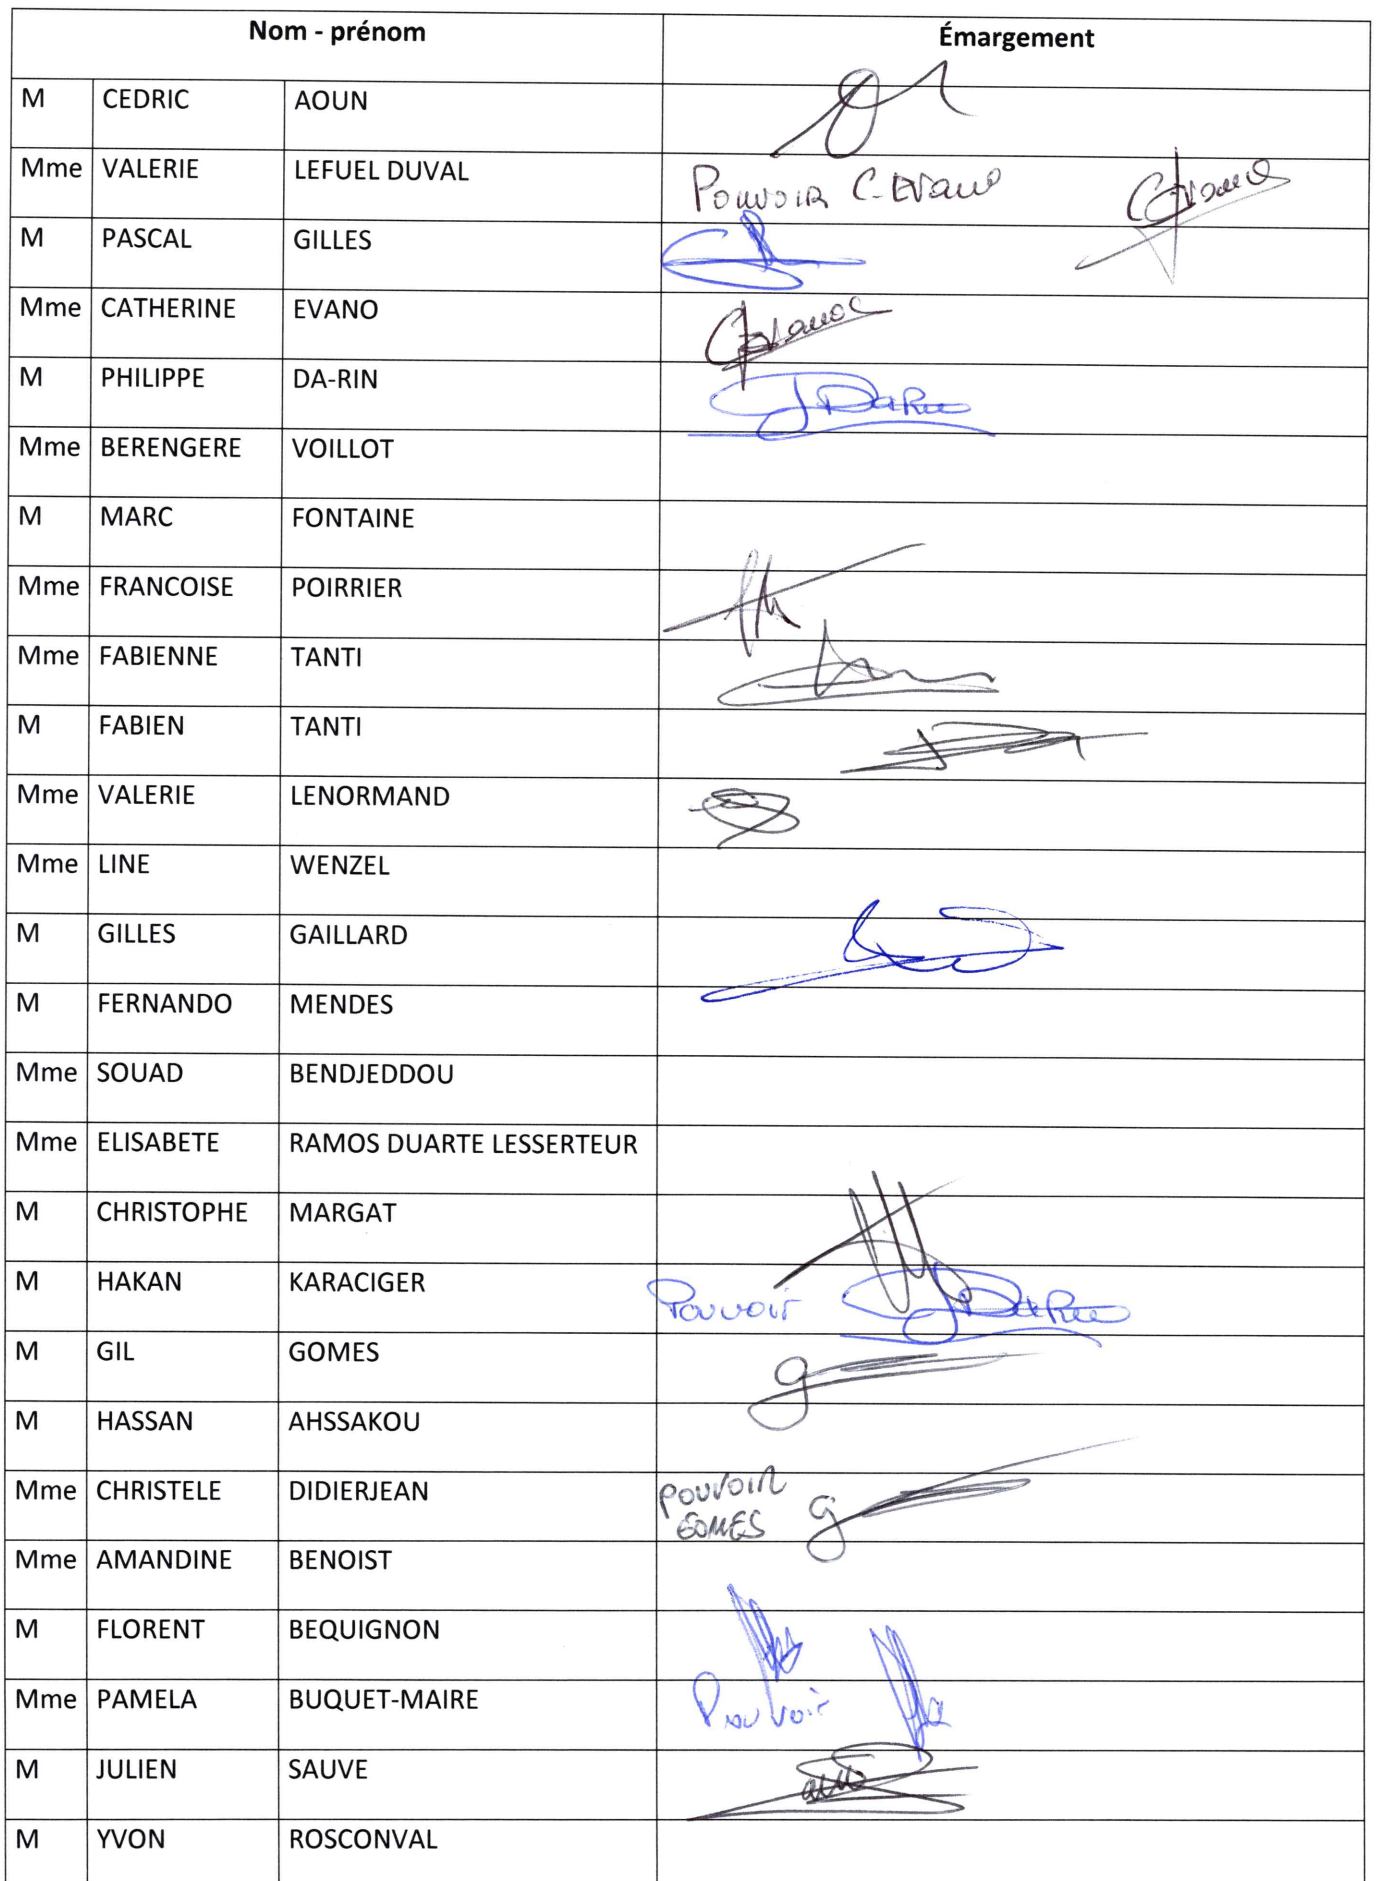 Nom - prénom Émargement
M CEDRIC AOUN
Mme VALERIE LEFUEL DUVAL Pouvoir C-Evano CEvano
M PASCAL GILLES
Mme CATHERINE EVANO CEvano
M PHILIPPE DA-RIN DaRin
Mme BERENGERE VOILLOT
M MARC FONTAINE
Mme FRANCOISE POIRRIER
Mme FABIENNE TANTI
M FABIEN TANTI
Mme VALERIE LENORMAND
Mme LINE WENZEL
M GILLES GAILLARD
M FERNANDO MENDES
Mme SOUAD BENDJEDDOU
Mme ELISABETE RAMOS DUARTE LESSERTEUR
M CHRISTOPHE MARGAT
M HAKAN KARACIGER Pouvoir DaRin
M GIL GOMES
M HASSAN AHSSAKOU
Mme CHRISTELE DIDIERJEAN POUVOIR
GOMES
Mme AMANDINE BENOIST
M FLORENT BEQUIGNON
Mme PAMELA BUQUET-MAIRE Pouvoir
M JULIEN SAUVE
M YVON ROSCONVAL